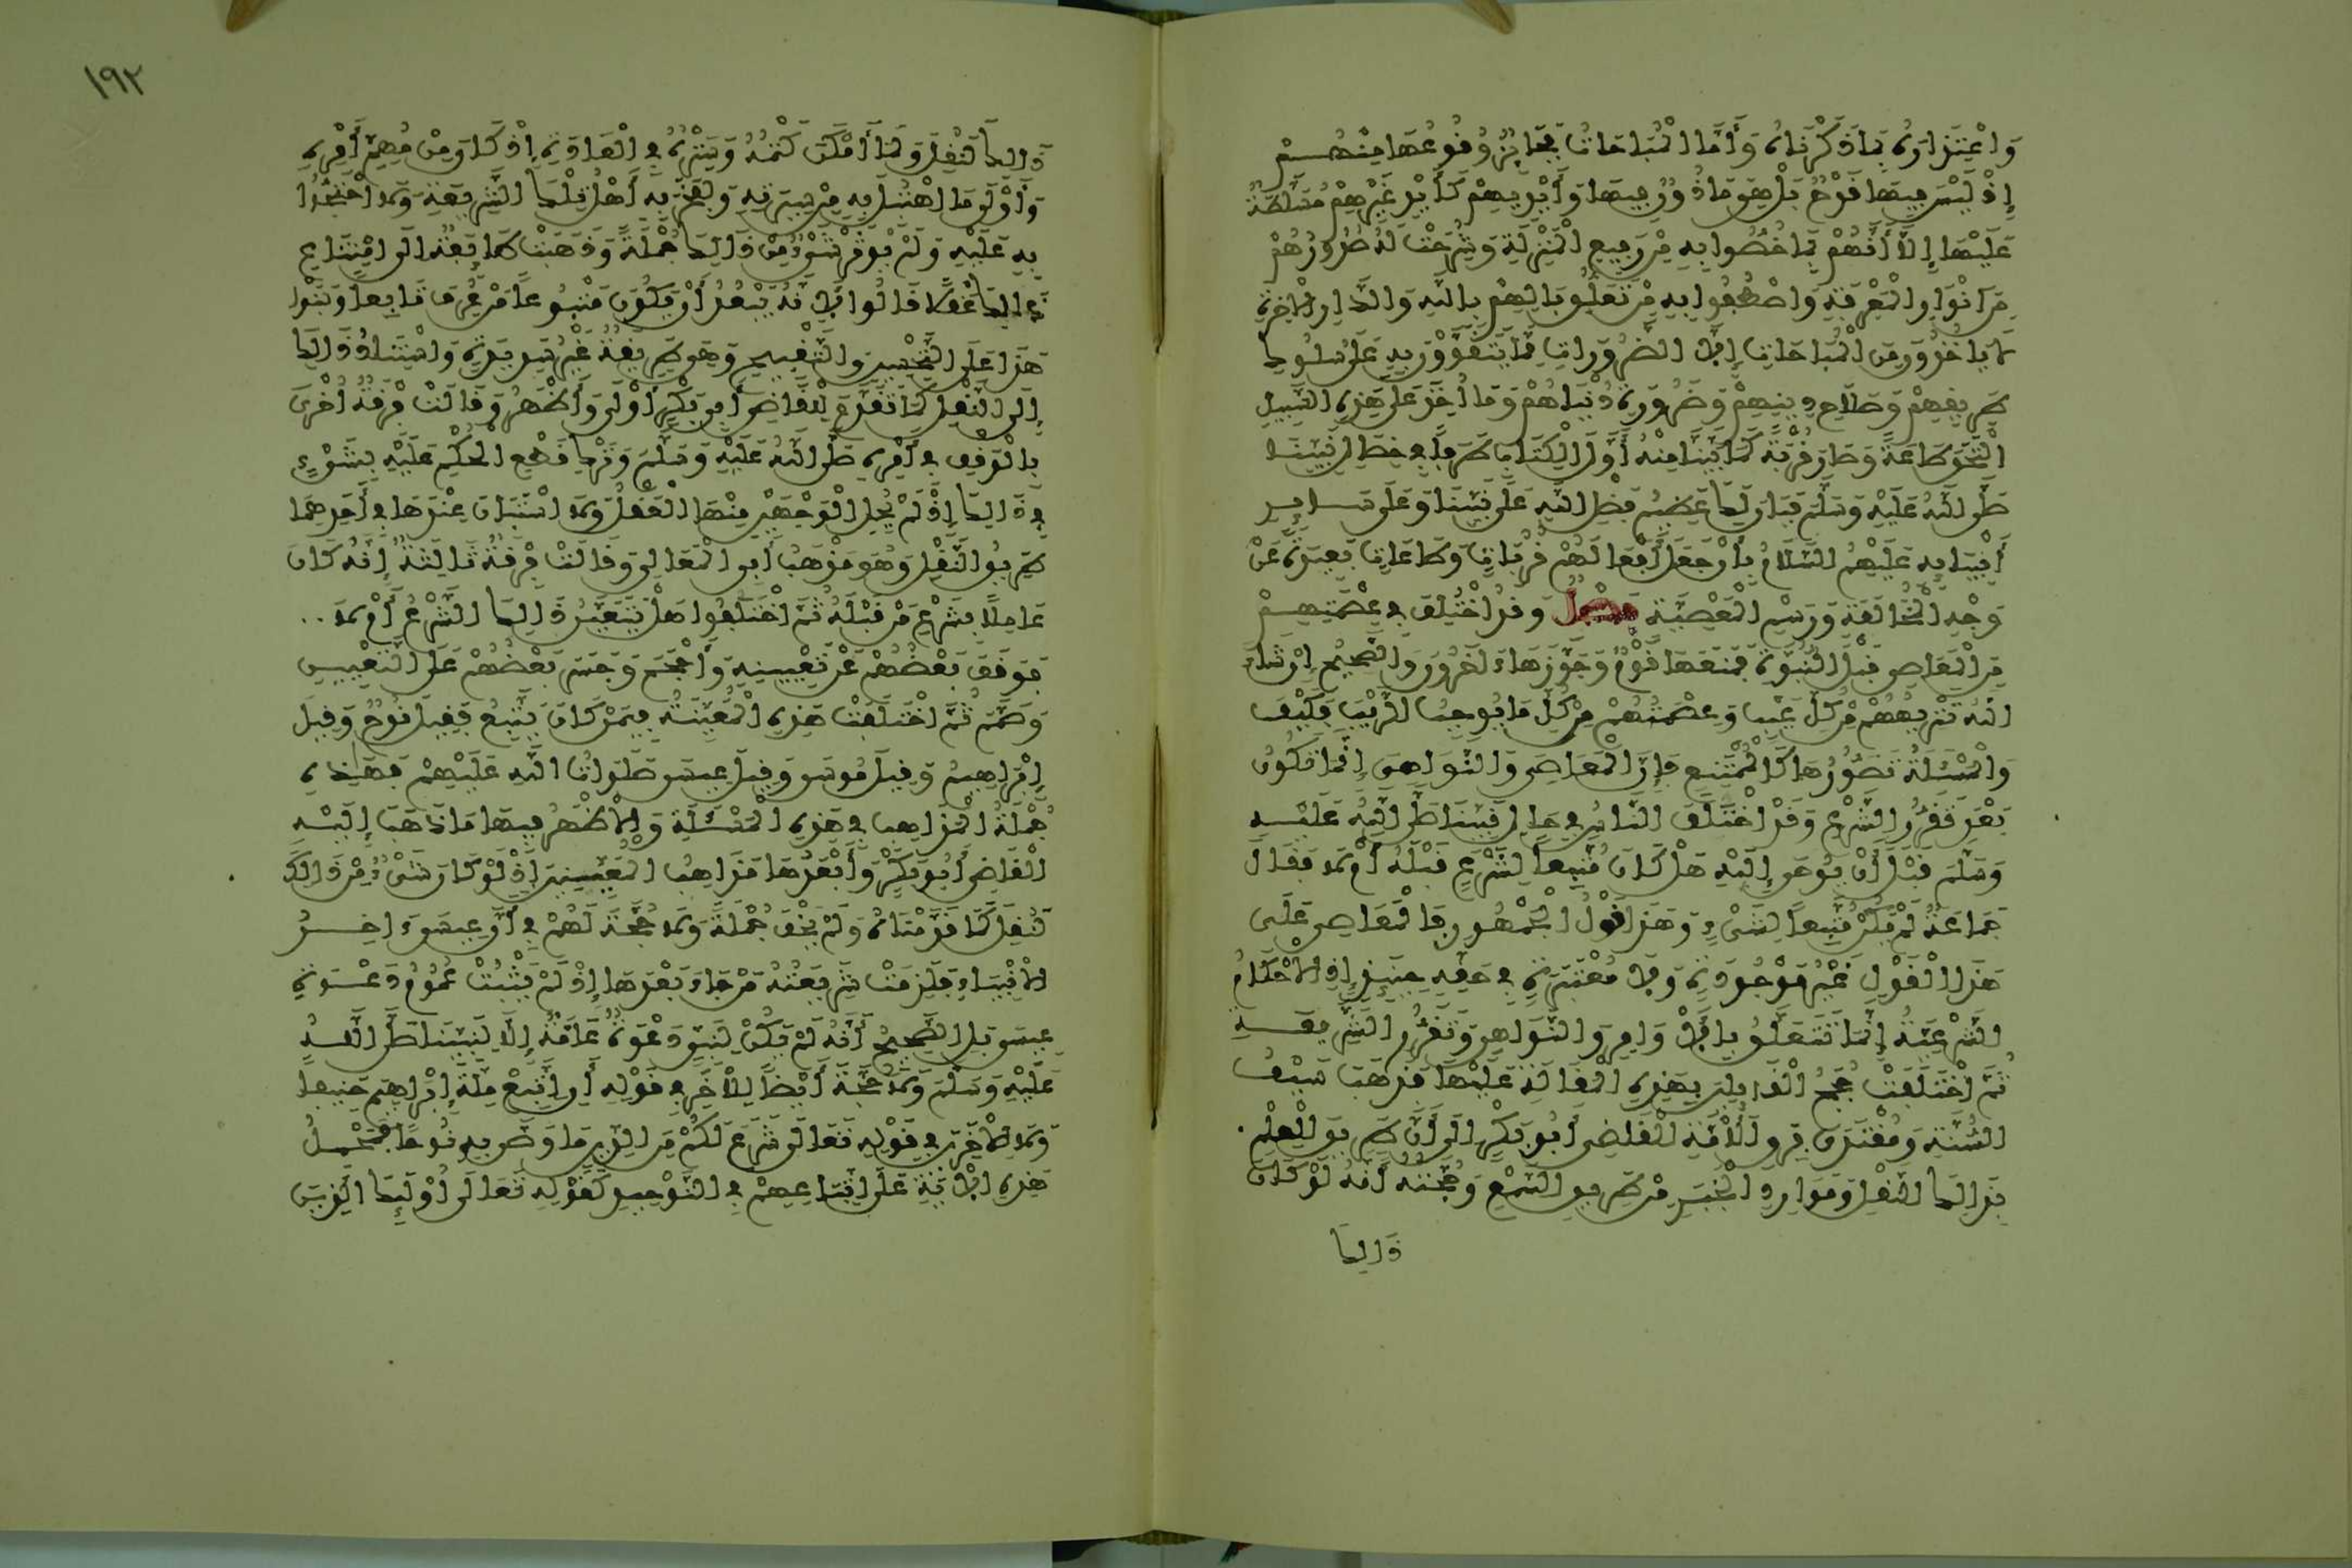 وَاعْتِزَارُهُ بِمَا ذَكَرْنَاهُ وَأَمَّا الْمُبَاحَاتُ فَجَائِزٌ وُقُوعُهَا مِنْهُمْ
إِذْ لَيْسَ فِيهَا قَدْحٌ بَلْ هِيَ مَاذُونٌ فِيهَا وَأَيْدِيهِمْ كَأَيْدِي غَيْرِهِمْ مُسَلَّطَةٌ
عَلَيْهَا إِلَّا أَنَّهُمْ بِمَا خُصُّوا بِهِ مِنْ رَفِيعِ الْمَنْزِلَةِ وَشُرِحَتْ لَهُ صُدُورُهُمْ
مِنْ أَنْوَارِ الْمَعْرِفَةِ وَاصْطُفُوا بِهِ مِنْ تَعَلُّقِ بَالِهِمْ بِاللَّهِ وَالدَّارِ الْآخِرَةِ
لَا يَأْخُذُونَ مِنَ الْمُبَاحَاتِ إِلَّا الضَّرُورَاتِ مِمَّا يَتَقَوَّوْنَ بِهِ عَلَى سُلُوكِ
طَرِيقِهِمْ وَصَلَاحِ دِينِهِمْ وَضَرُورَةِ دُنْيَاهُمْ وَمَا أُخِذَ عَلَى هَذِهِ السَّبِيلِ
الْتَحَقَ طَاعَةً وَصَارَ قُرْبَةً كَمَا بَيَّنَّا مِنْهُ أَوَّلَ الْكِتَابِ طَرَفًا فِي خِصَالِ نَبِيِّنَا
صَلَّى اللَّهُ عَلَيْهِ وَسَلَّمَ فَبَانَ لَكَ عَظِيمُ فَضْلِ اللَّهِ عَلَى نَبِيِّنَا وَعَلَى سَايِرِ
أَنْبِيَايِهِ عَلَيْهِمُ السَّلَامُ بِأَنْ جَعَلَ أَفْعَالَهُمْ قُرُبَاتٍ وَطَاعَاتٍ بَعِيدَةً عَنْ
وَجْهِ الْمُخَالَفَةِ وَرَسْمِ الْمَعْصِيَةِ فَصْلٌ وَقَدْ اخْتُلِفَ فِي عِصْمَتِهِمْ
مِنَ الْمَعَاصِي قَبْلَ النُّبُوَّةِ فَمَنَعَهَا قَوْمٌ وَجَوَّزَهَا آخَرُونَ وَالصَّحِيحُ إِنْ شَاءَ
اللَّهُ تَنْزِيهُهُمْ مِنْ كُلِّ عَيْبٍ وَعِصْمَتُهُمْ مِنْ كُلِّ مَا يُوجِبُ الرَّيْبَ فَكَيْفَ
وَالْمَسْئَلَةُ تَصَوُّرُهَا كَالْمُمْتَنِعِ فَإِنَّ الْمَعَاصِيَ وَالنَّوَاهِيَ إِنَّمَا تَكُونُ
بَعْدَ تَقَرُّرِ الشَّرْعِ وَقَدْ اخْتَلَفَ النَّاسُ فِي حَالِ نَبِيِّنَا صَلَّى اللَّهُ عَلَيْهِ
وَسَلَّمَ قَبْلَ أَنْ يُوحَى إِلَيْهِ هَلْ كَانَ مُتَّبِعًا لِشَرْعٍ قَبْلَهُ أَمْ لَا فَقَالَ
جَمَاعَةٌ لَمْ يَكُنْ مُتَّبِعًا لِشَيْءٍ وَهَذَا قَوْلُ الْجُمْهُورِ فَالْمَعَاصِي عَلَى
هَذَا الْقَوْلِ غَيْرُ مَوْجُودَةٍ وَلَا مُعْتَبَرَةٍ فِي حَقِّهِ حِينَئِذٍ إِذِ الْأَحْكَامُ
الشَّرْعِيَّةُ إِنَّمَا تَتَعَلَّقُ بِالْأَوَامِرِ وَالنَّوَاهِي وَتَقَرُّرِ الشَّرِيعَةِ
ثُمَّ اخْتَلَفَتْ حُجَجُ الْقَايِلِينَ بِهَذِهِ الْمَقَالَةِ عَلَيْهَا فَذَهَبَ سَيْفُ
السُّنَّةِ وَمُقْتَدَى فِرَقِ الْأُمَّةِ الْقَاضِي أَبُو بَكْرٍ إِلَى أَنَّ طَرِيقَ الْعِلْمِ
بِذَلِكَ النَّقْلُ وَمَوَارِدُ الْخَبَرِ مِنْ طَرِيقِ السَّمْعِ وَحُجَّتُهُ أَنَّهُ لَوْ كَانَ
ذَالِكَ
١٩٢
ذَالِكَ لَنُقِلَ وَلَمَا أَمْكَنَ كَتْمُهُ وَسَتْرُهُ فِي الْعَادَةِ إِذْ كَانَ مِنْ مُهِمِّ أَمْرِهِ
وَأَوْلَى مَا اهْتُبِلَ بِهِ مِنْ سِيرَتِهِ وَلَفَخَرَ بِهِ أَهْلُ تِلْكَ الشَّرِيعَةِ وَلَاحْتَجُّوا
بِهِ عَلَيْهِ وَلَمْ يُوثَرْ شَيْءٌ مِنْ ذَالِكَ جُمْلَةً وَذَهَبَتْ طَايِفَةٌ إِلَى امْتِنَاعِ
ذَالِكَ عَقْلًا قَالُوا لِأَنَّهُ يَبْعُدُ أَنْ يَكُونَ مَتْبُوعًا مَنْ عُرِفَ تَابِعًا وَبَنَوْا
هَذَا عَلَى التَّحْسِينِ وَالتَّقْبِيحِ وَهِيَ طَرِيقَةٌ غَيْرُ سَدِيدَةٍ وَاسْتِنَادُ ذَالِكَ
إِلَى النَّقْلِ كَمَا تَقَدَّمَ لِلْقَاضِي أَبِي بَكْرٍ أَوْلَى وَأَظْهَرُ وَقَالَتْ فِرْقَةٌ أُخْرَى
بِالْوَقْفِ فِي أَمْرِهِ صَلَّى اللَّهُ عَلَيْهِ وَسَلَّمَ وَتَرْكِ قَطْعِ الْحُكْمِ عَلَيْهِ بِشَيْءٍ
فِي ذَالِكَ إِذْ لَمْ يُحِلِ الْوَجْهَيْنِ مِنْهَا الْعَقْلُ وَلَا اسْتَبَانَ عِنْدَهَا فِي أَحَدِهِمَا
طَرِيقُ النَّقْلِ وَهُوَ مَذْهَبُ أَبِي الْمَعَالِي وَقَالَتْ فِرْقَةٌ ثَالِثَةٌ إِنَّهُ كَانَ
عَامِلًا بِشَرْعِ مَنْ قَبْلَهُ ثُمَّ اخْتَلَفُوا هَلْ يَتَعَيَّنُ ذَالِكَ الشَّرْعُ أَمْ لَا
فَوَقَفَ بَعْضُهُمْ عَنْ تَعْيِينِهِ وَأَحْجَمَ وَجَسَرَ بَعْضُهُمْ عَلَى التَّعْيِينِ
وَصَمَّمَ ثُمَّ اخْتَلَفَتْ هَذِهِ الْمُعَيِّنَةُ فِيمَنْ كَانَ يَتَّبِعُ فَقِيلَ نُوحٌ وَقِيلَ
إِبْرَاهِيمُ وَقِيلَ مُوسَى وَقِيلَ عِيسَى صَلَوَاتُ اللَّهِ عَلَيْهِمْ فَهَذِهِ
جُمْلَةُ الْمَذَاهِبِ فِي هَذِهِ الْمَسْئَلَةِ وَالْأَظْهَرُ فِيهَا مَا ذَهَبَ إِلَيْهِ
الْقَاضِي أَبُو بَكْرٍ وَأَبْعَدُهَا مَذَاهِبُ الْمُعَيِّنِينَ إِذْ لَوْ كَانَ شَيْءٌ مِنْ ذَالِكَ
لَنُقِلَ كَمَا قَدَّمْنَاهُ وَلَمْ يَخْفَ جُمْلَةً وَلَا حُجَّةَ لَهُمْ فِي أَنَّ عِيسَى آخِرُ
الْأَنْبِيَاءِ فَلَزِمَتْ شَرِيعَتُهُ مَنْ جَاءَ بَعْدَهَا إِذْ لَمْ يَثْبُتْ عُمُومُ دَعْوَةِ
عِيسَى بَلِ الصَّحِيحُ أَنَّهُ لَمْ يَكُنْ لِنَبِيٍّ دَعْوَةٌ عَامَّةٌ إِلَّا لِنَبِيِّنَا صَلَّى اللَّهُ
عَلَيْهِ وَسَلَّمَ وَلَا حُجَّةَ أَيْضًا لِلْآخَرِ فِي قَوْلِهِ أَنِ اتَّبِعْ مِلَّةَ إِبْرَاهِيمَ حَنِيفًا
وَلَا لِلْآخَرِينَ فِي قَوْلِهِ تَعَالَى شَرَعَ لَكُمْ مِنَ الدِّينِ مَا وَصَّى بِهِ نُوحًا فَمَحْمَلُ
هَذِهِ الْآيَةِ عَلَى اتِّبَاعِهِمْ فِي التَّوْحِيدِ كَقَوْلِهِ تَعَالَى أُوْلَئِكَ الَّذِينَ